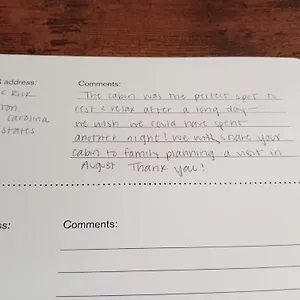 & address:
& Rick
Carolina
States
Comments:
The cabin was the perfect spot to
rest & relax after a long day—
we wish we could have spent
another night! we will share your
cabin to family planning a visit in
August Thank you!
ss:
Comments: